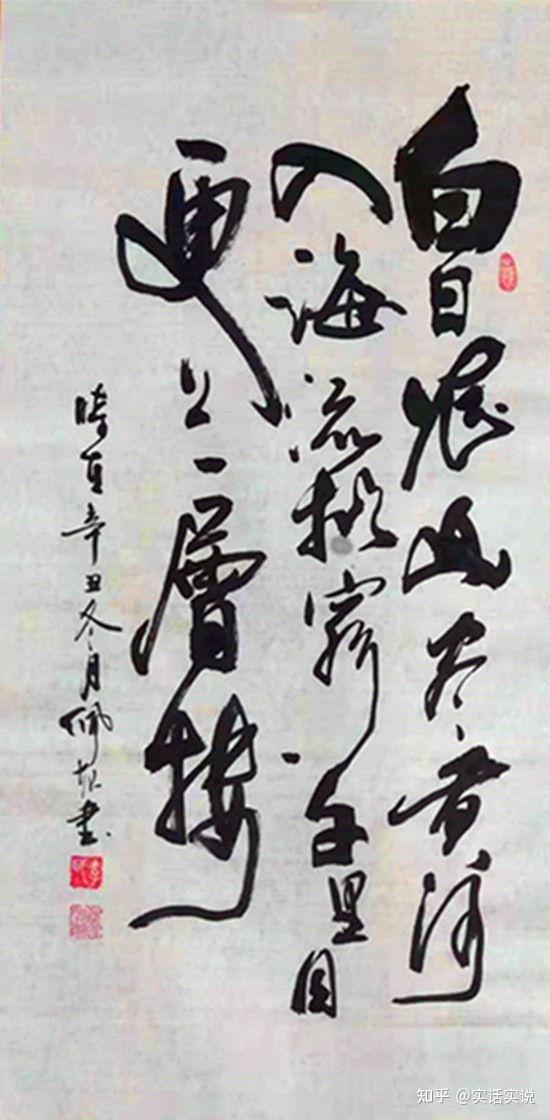 白日依山尽黄河
入海流欲穷千里目
更上一層楼
辛丑冬月佩 书
知乎 @实话实说